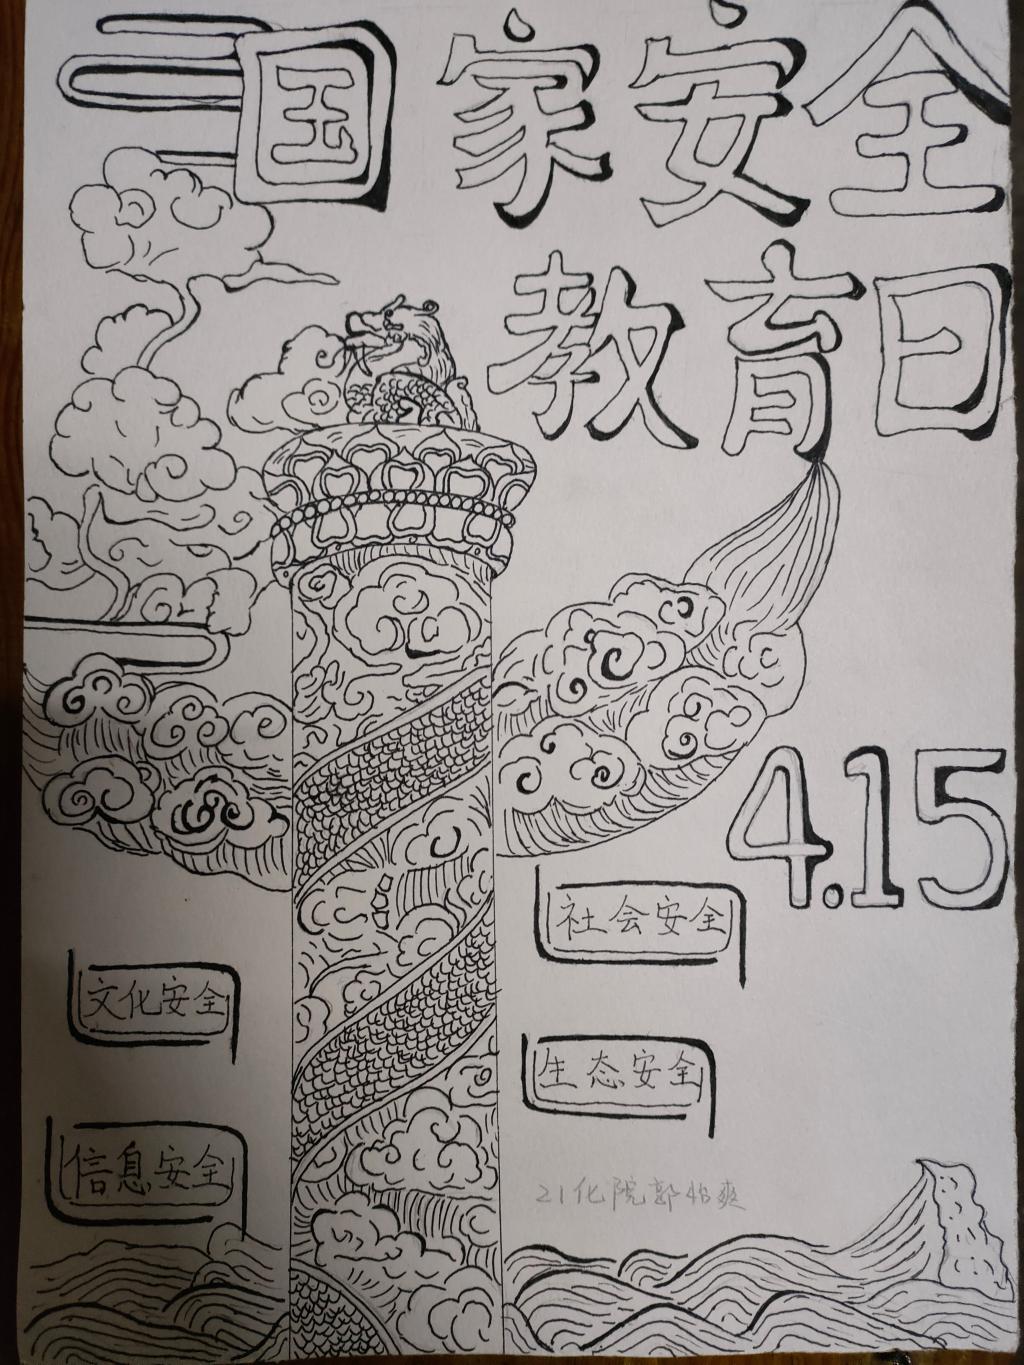 国家安全
教育日
4.15
社会安全
文化安全
生态安全
信息安全
21化院郭怡爽